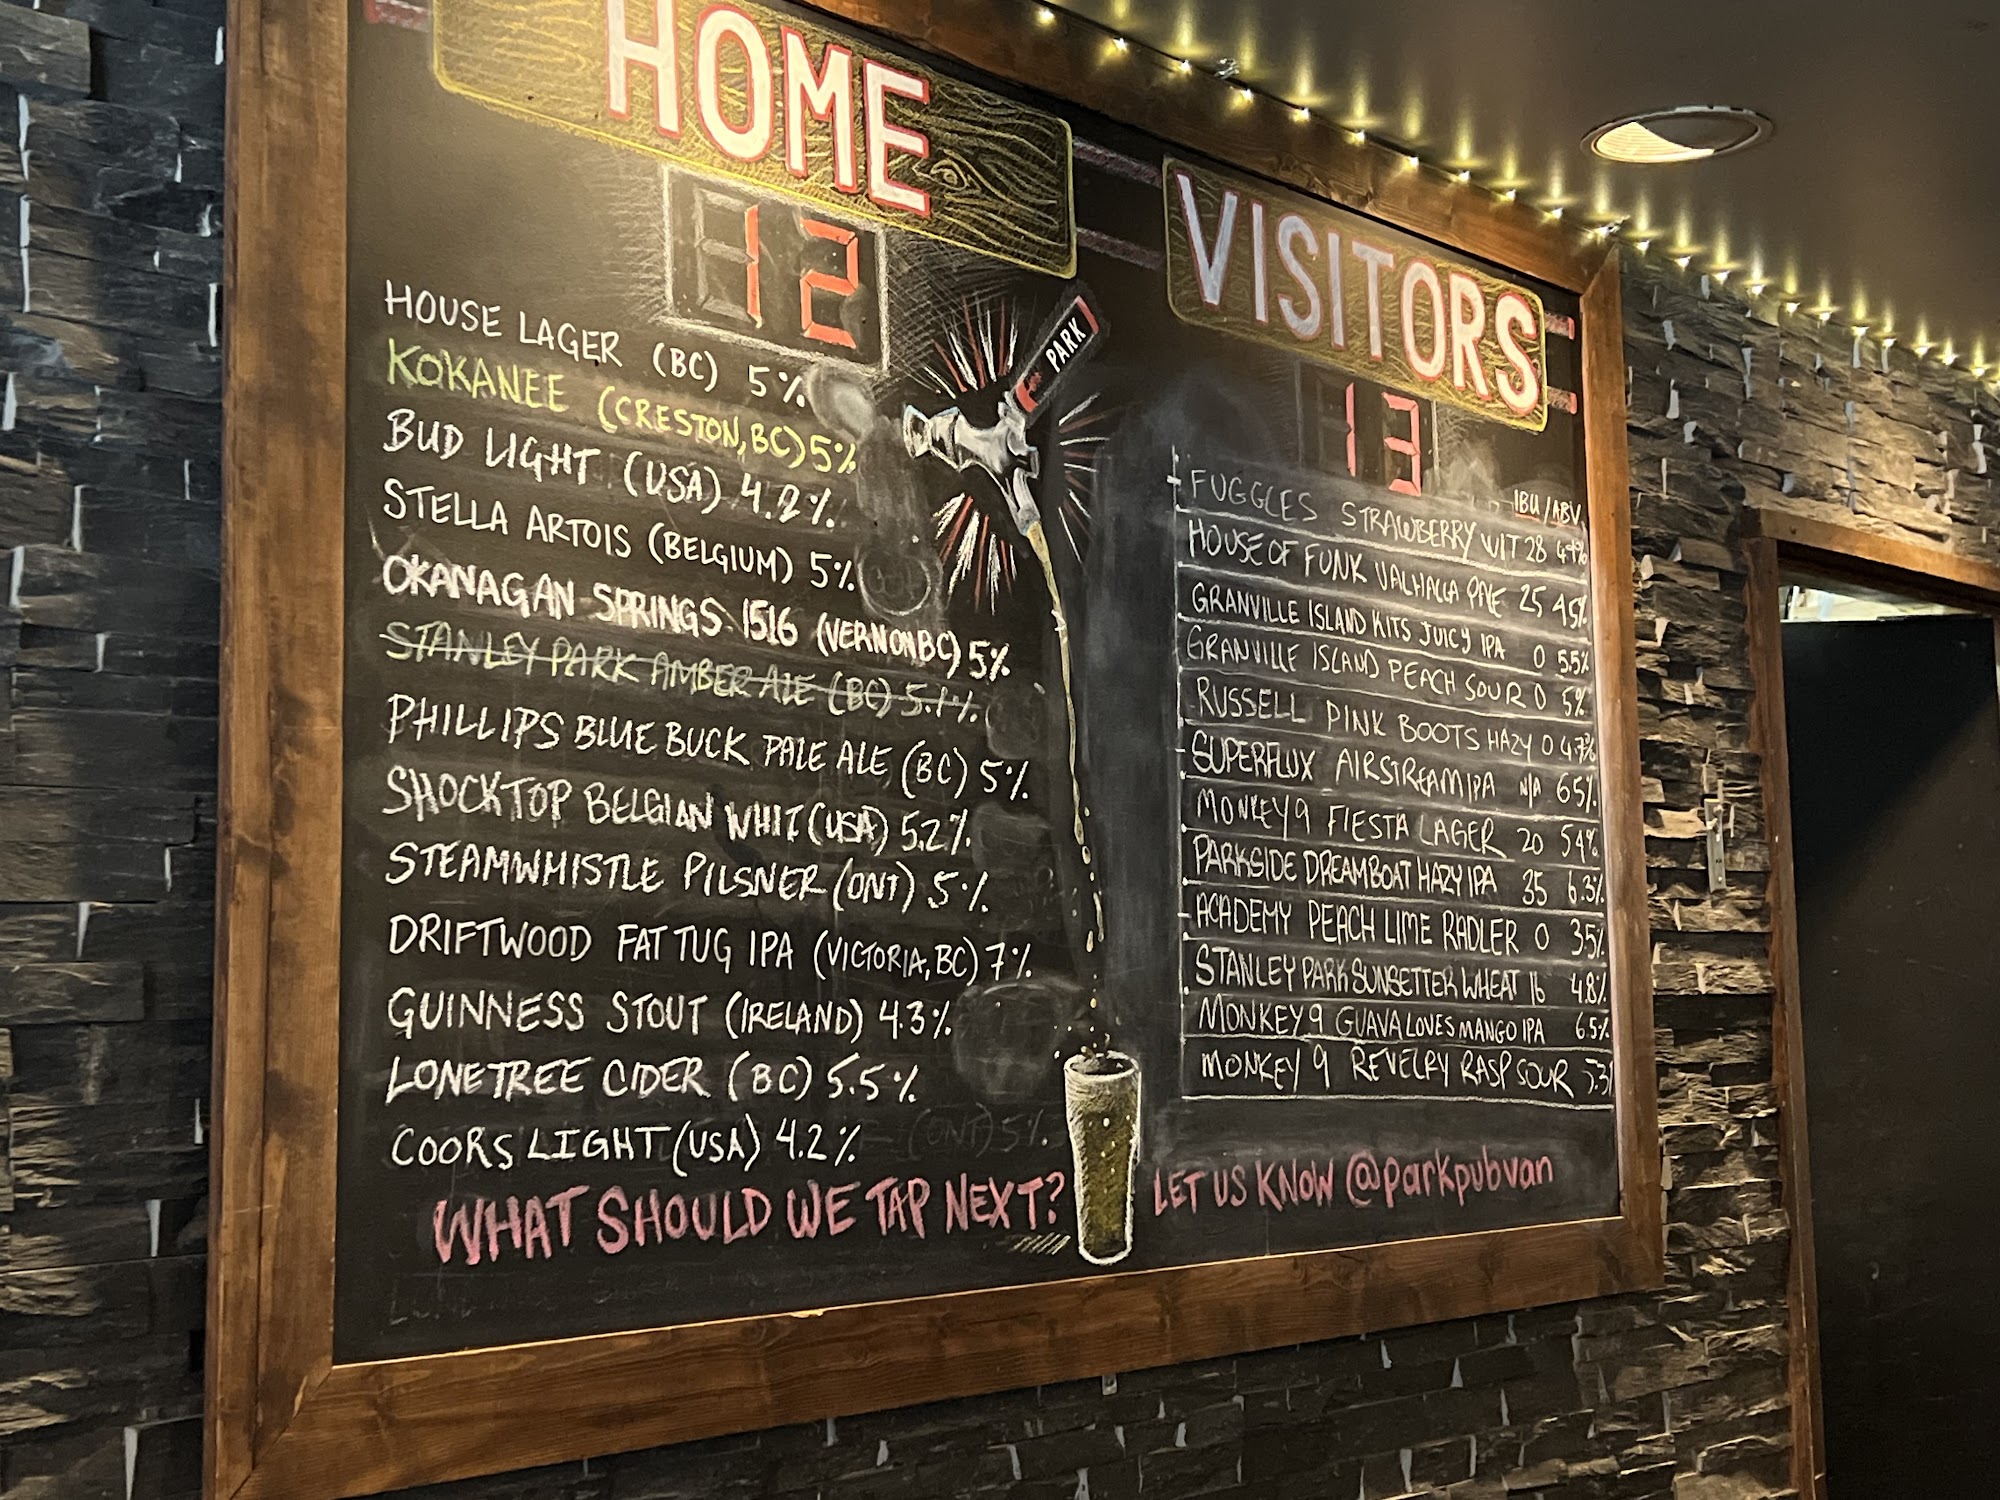 HOME
12
HOUSE LAGER (BC) 5%
KOKANEE (CRESTON, BC) 5%
BUD LIGHT (USA) 4.2%
STELLA ARTOIS (BELGIUM) 5%
OKANAGAN SPRINGS 1516 (VERNON BC) 5%
STANLEY PARK AMBER ALE (BC) 5.1%
PHILLIPS BLUE BUCK PALE ALE (BC) 5%
SHOCKTOP BELGIAN WHIT (USA) 5.2%
STEAMWHISTLE PILSNER (ONT) 5%
DRIFTWOOD FAT TUG IPA (VICTORIA, BC) 7%
GUINNESS STOUT (IRELAND) 4.3%
LONETREE CIDER (BC) 5.5%
COORS LIGHT (USA) 4.2%
(ONT) 5%
WHAT SHOULD WE TAP NEXT?
PARK
VISITORS
13
IBU/ABV
FUGGLES STRAWBERRY WIT 28
HOUSE OF FUNK VALHALLA 25 4.5%
GRANVILLE ISLAND KITS JUICY IPA 0 5.5%
GRANVILLE ISLAND PEACH SOUR 0 5%
RUSSELL PINK BOOTS HAZY 0 4.7%
SUPERFLUX AIRSTREAM IPA N/A 65%
MONKEY 9 FIESTA LAGER 20 54%
PARKSIDE DREAMBOAT HAZY IPA 35 6.3%
ACADEMY PEACH LIME RADLER 0 35%
STANLEY PARK SUNSETTER WHEAT 16 4.8%
MONKEY 9 GUAVA LOVES MANGO IPA 6.5%
MONKEY 9 REVELRY RASP SOUR 5.3%
LET US KNOW @parkpubvan